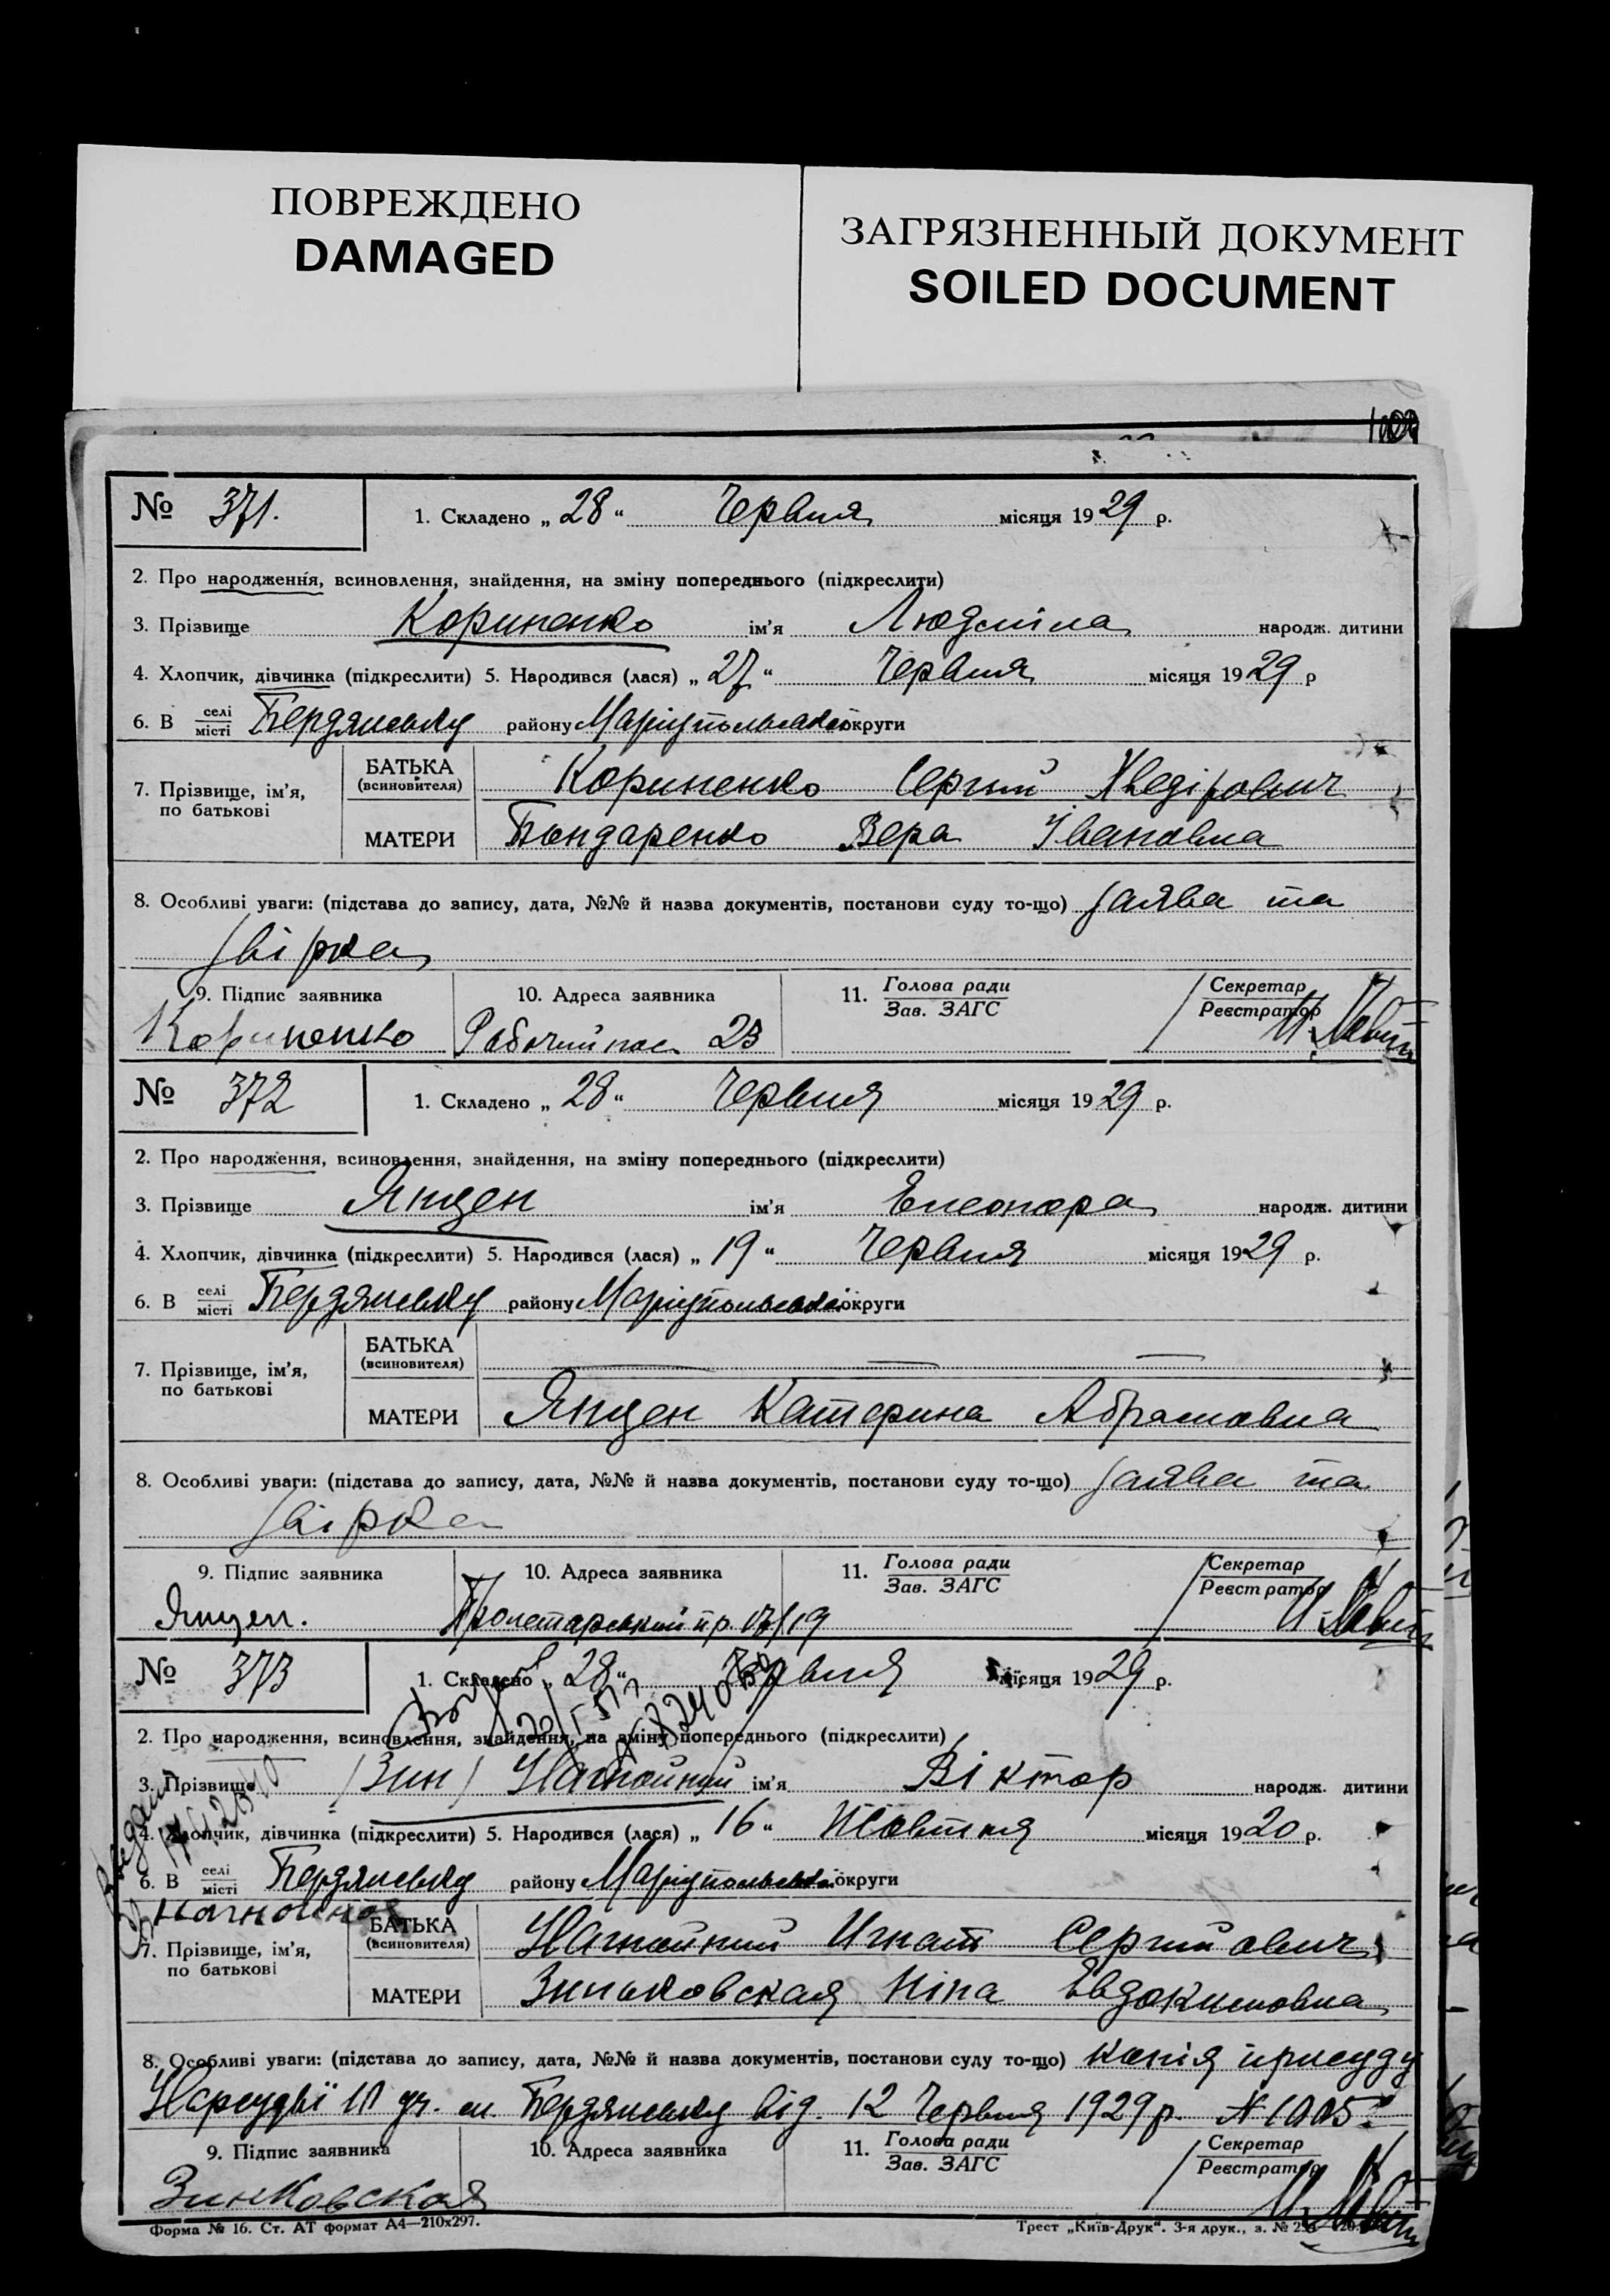 ПОВРЕЖДЕНО
DAMAGED
ЗАГРЯЗНЕННЫЙ ДОКУМЕНТ
SOILED DOCUMENT
№ 371. 1. Складено „ 28 “ Червня місяця 1929 р.
2. Про народження, всиновлення, знайдення, на зміну попереднього (підкреслити)
3. Прізвище Кориненко ім’я Людміла народж. дитини
4. Хлопчик, дівчинка (підкреслити) 5. Народився (лася) „ 27 “ Червня місяця 1929 р
6. В селі місті Бердянську району Маріупольської округи
7. Прізвище, ім’я, по батькові
БАТЬКА (всиновителя) Кориненко Сергий Хведірович
МАТЕРИ Бондаренко Вера Івановна
8. Особливі уваги: (підстава до запису, дата, №№ й назва документів, постанови суду то-що) заява та
звірка
9. Підпис заявника 10. Адреса заявника 11. Голова ради Зав. ЗАГС / Секретар Реєстратор
Кориненко Рабочий пос. 23
№ 372 1. Складено „ 28 “ Червня місяця 1929 р.
2. Про народження, всиновлення, знайдення, на зміну попереднього (підкреслити)
3. Прізвище Янцен ім’я Елеонора народж. дитини
4. Хлопчик, дівчинка (підкреслити) 5. Народився (лася) „ 19 “ Червня місяця 1929 р.
6. В селі місті Бердянську району Маріупольської округи
7. Прізвище, ім’я, по батькові
БАТЬКА (всиновителя) — — —
МАТЕРИ Янцен Катерина Абрамовна
8. Особливі уваги: (підстава до запису, дата, №№ й назва документів, постанови суду то-що) заява та
звірка
9. Підпис заявника 10. Адреса заявника 11. Голова ради Зав. ЗАГС / Секретар Реєстратор
Янцен. Пролетарський пр. 17/19
№ 373 1. Складено „ 28 “ Червня місяця 1929 р.
2. Про народження, всиновлення, знайдення, на зміну попереднього (підкреслити)
3. Прізвище /Зин/ Нагнойний ім’я Віктор народж. дитини
4. Хлопчик, дівчинка (підкреслити) 5. Народився (лася) „ 16 “ Жовтня місяця 1920 р.
6. В селі місті Бердянську району Маріупольської округи
7. Прізвище, ім’я, по батькові
БАТЬКА (всиновителя) Нагнойний Игнат Сергийович
МАТЕРИ Зиньковская Ніна Евдокимовна
8. Особливі уваги: (підстава до запису, дата, №№ й назва документів, постанови суду то-що) копія присуду
Нарсудві 10 уч. м. Бердянську від. 12 Червня 1929 р. № 1005
9. Підпис заявника 10. Адреса заявника 11. Голова ради Зав. ЗАГС / Секретар Реєстратор
Зинковская
Форма № 16. Ст. АТ формат А4—210х297. Трест „Київ-Друк“. 3-я друк., з. №